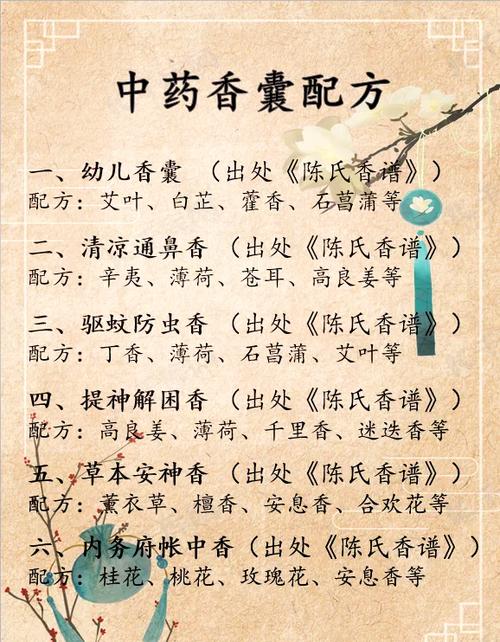 中药香囊配方
一、幼儿香囊 （出处《陈氏香谱》）
配方：艾叶、白芷、藿香、石菖蒲等
二、清凉通鼻香 （出处《陈氏香谱》）
配方：辛夷、薄荷、苍耳、高良姜等
三、驱蚊防虫香 （出处《陈氏香谱》）
配方：丁香、薄荷、石菖蒲、艾叶等
四、提神解困香 （出处《陈氏香谱》）
配方：高良姜、薄荷、千里香、迷迭香等
五、草本安神香 （出处《陈氏香谱》）
配方：薰衣草、檀香、安息香、合欢花等
六、内务府帐中香（出处《陈氏香谱》）
配方：桂花、桃花、玫瑰花、安息香等